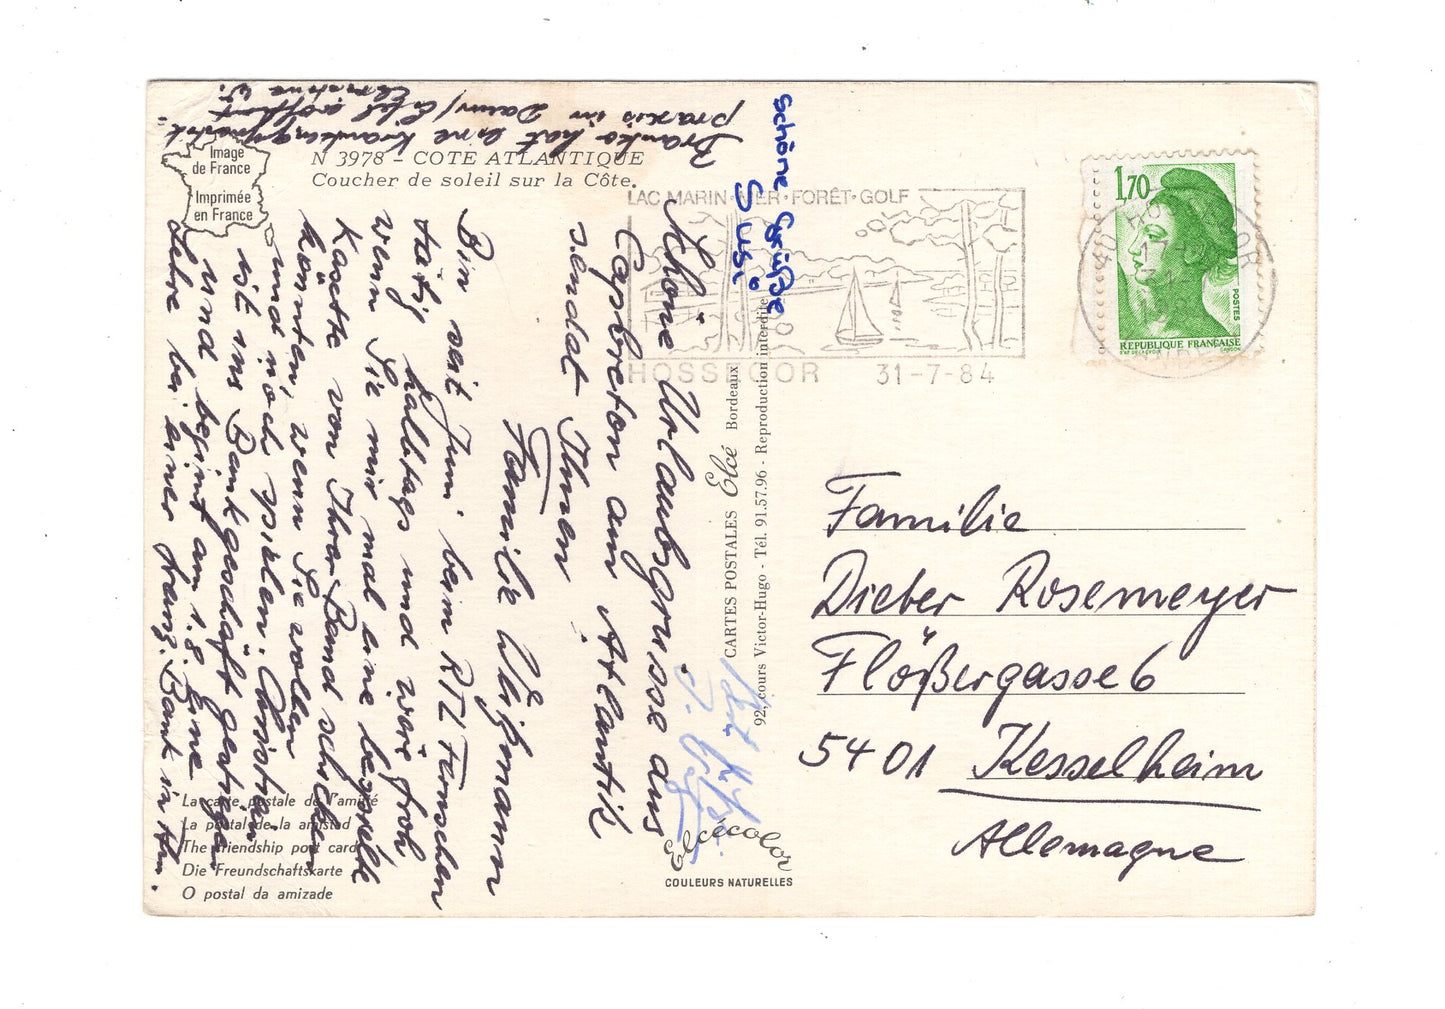 Branko hat eine Krankengymnastik-
praxis in Daun/Eifel eröffnet
Image
de France
Imprimée
en France
N 3978 - COTE ATLANTIQUE
Coucher de soleil sur la Côte.
LAC MARIN·MER·FORÊT·GOLF
HOSSEGOR 31-7-84
1,70
POSTES
REPUBLIQUE FRANÇAISE
D'AP. DELACROIX GANDON
Schöne Grüße
Susi
Schöne Urlaubsgrüsse aus
Capbreton am Atlantik
sendet Ihnen
Familie
Bin seit Juni beim RTL Fernsehen
tätig halbtags und wäre froh,
wenn Sie mir mal eine bespielte
Kasette von Ihrer Band schicken
könnten, wenn Sie wollen
und noch spielen. Christian
ist ins Bankgeschäft gestiegen
und beginnt am 1.8. eine
Lehre bei einer franz. Bank in
CARTES POSTALES Elcé Bordeaux
92, cours Victor-Hugo - Tél. 91.57.96 - Reproduction interdite
Familie
Dieter Rosemeyer
Flößergasse 6
5401 Kesselheim
Allemagne
La carte postale de l'amitié
La postal de la amistad
The friendship post card
Die Freundschaftskarte
O postal da amizade
Elcécolor
COULEURS NATURELLES